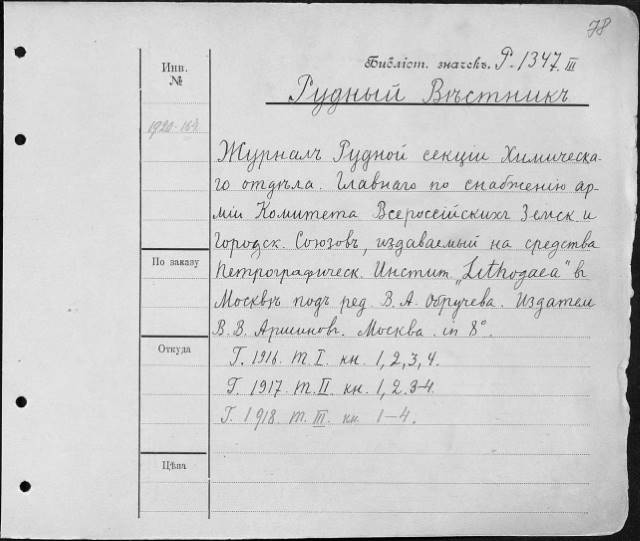 78
Библіот. значекъ. Р. 1347. III
Инв.
№
Рудный Вѣстникъ
1920-164.
Журналъ Рудной секціи Химическа-
го отдѣла. Главнаго по снабженію ар-
міи Комитета Всероссійскихъ Земск. и
Городск. Союзовъ, издаваемый на средства
По заказу
Петрографическ. Институт „Lithogaea" въ
Москвѣ подъ ред. В. А. Обручева. Издатель
В. В. Аршиновъ. Москва. in 8°.
Откуда
Г. 1916. Т. I. кн. 1, 2, 3, 4.
Г. 1917. Т. II. кн. 1, 2. 3-4.
Г. 1918. Т. III. кн. 1-4.
Цѣна